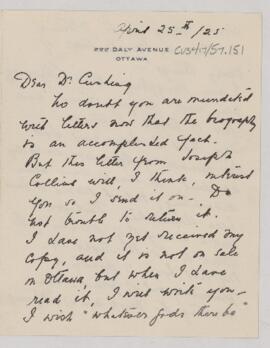 April 25th /25
222 DALY AVENUE
OTTAWA
CUS417/57.151
Dear Dr. Cushing
No doubt you are inundated
with letters now that the biography
is an accomplished fact.
But this letter from Joseph
Collins will, I think, interest
you so I send it on. Do
not trouble to return it.
I have not yet received my
copy, and it is not on sale
in Ottawa, but when I have
read it, I will write you -
I wish "whatever gods there be"